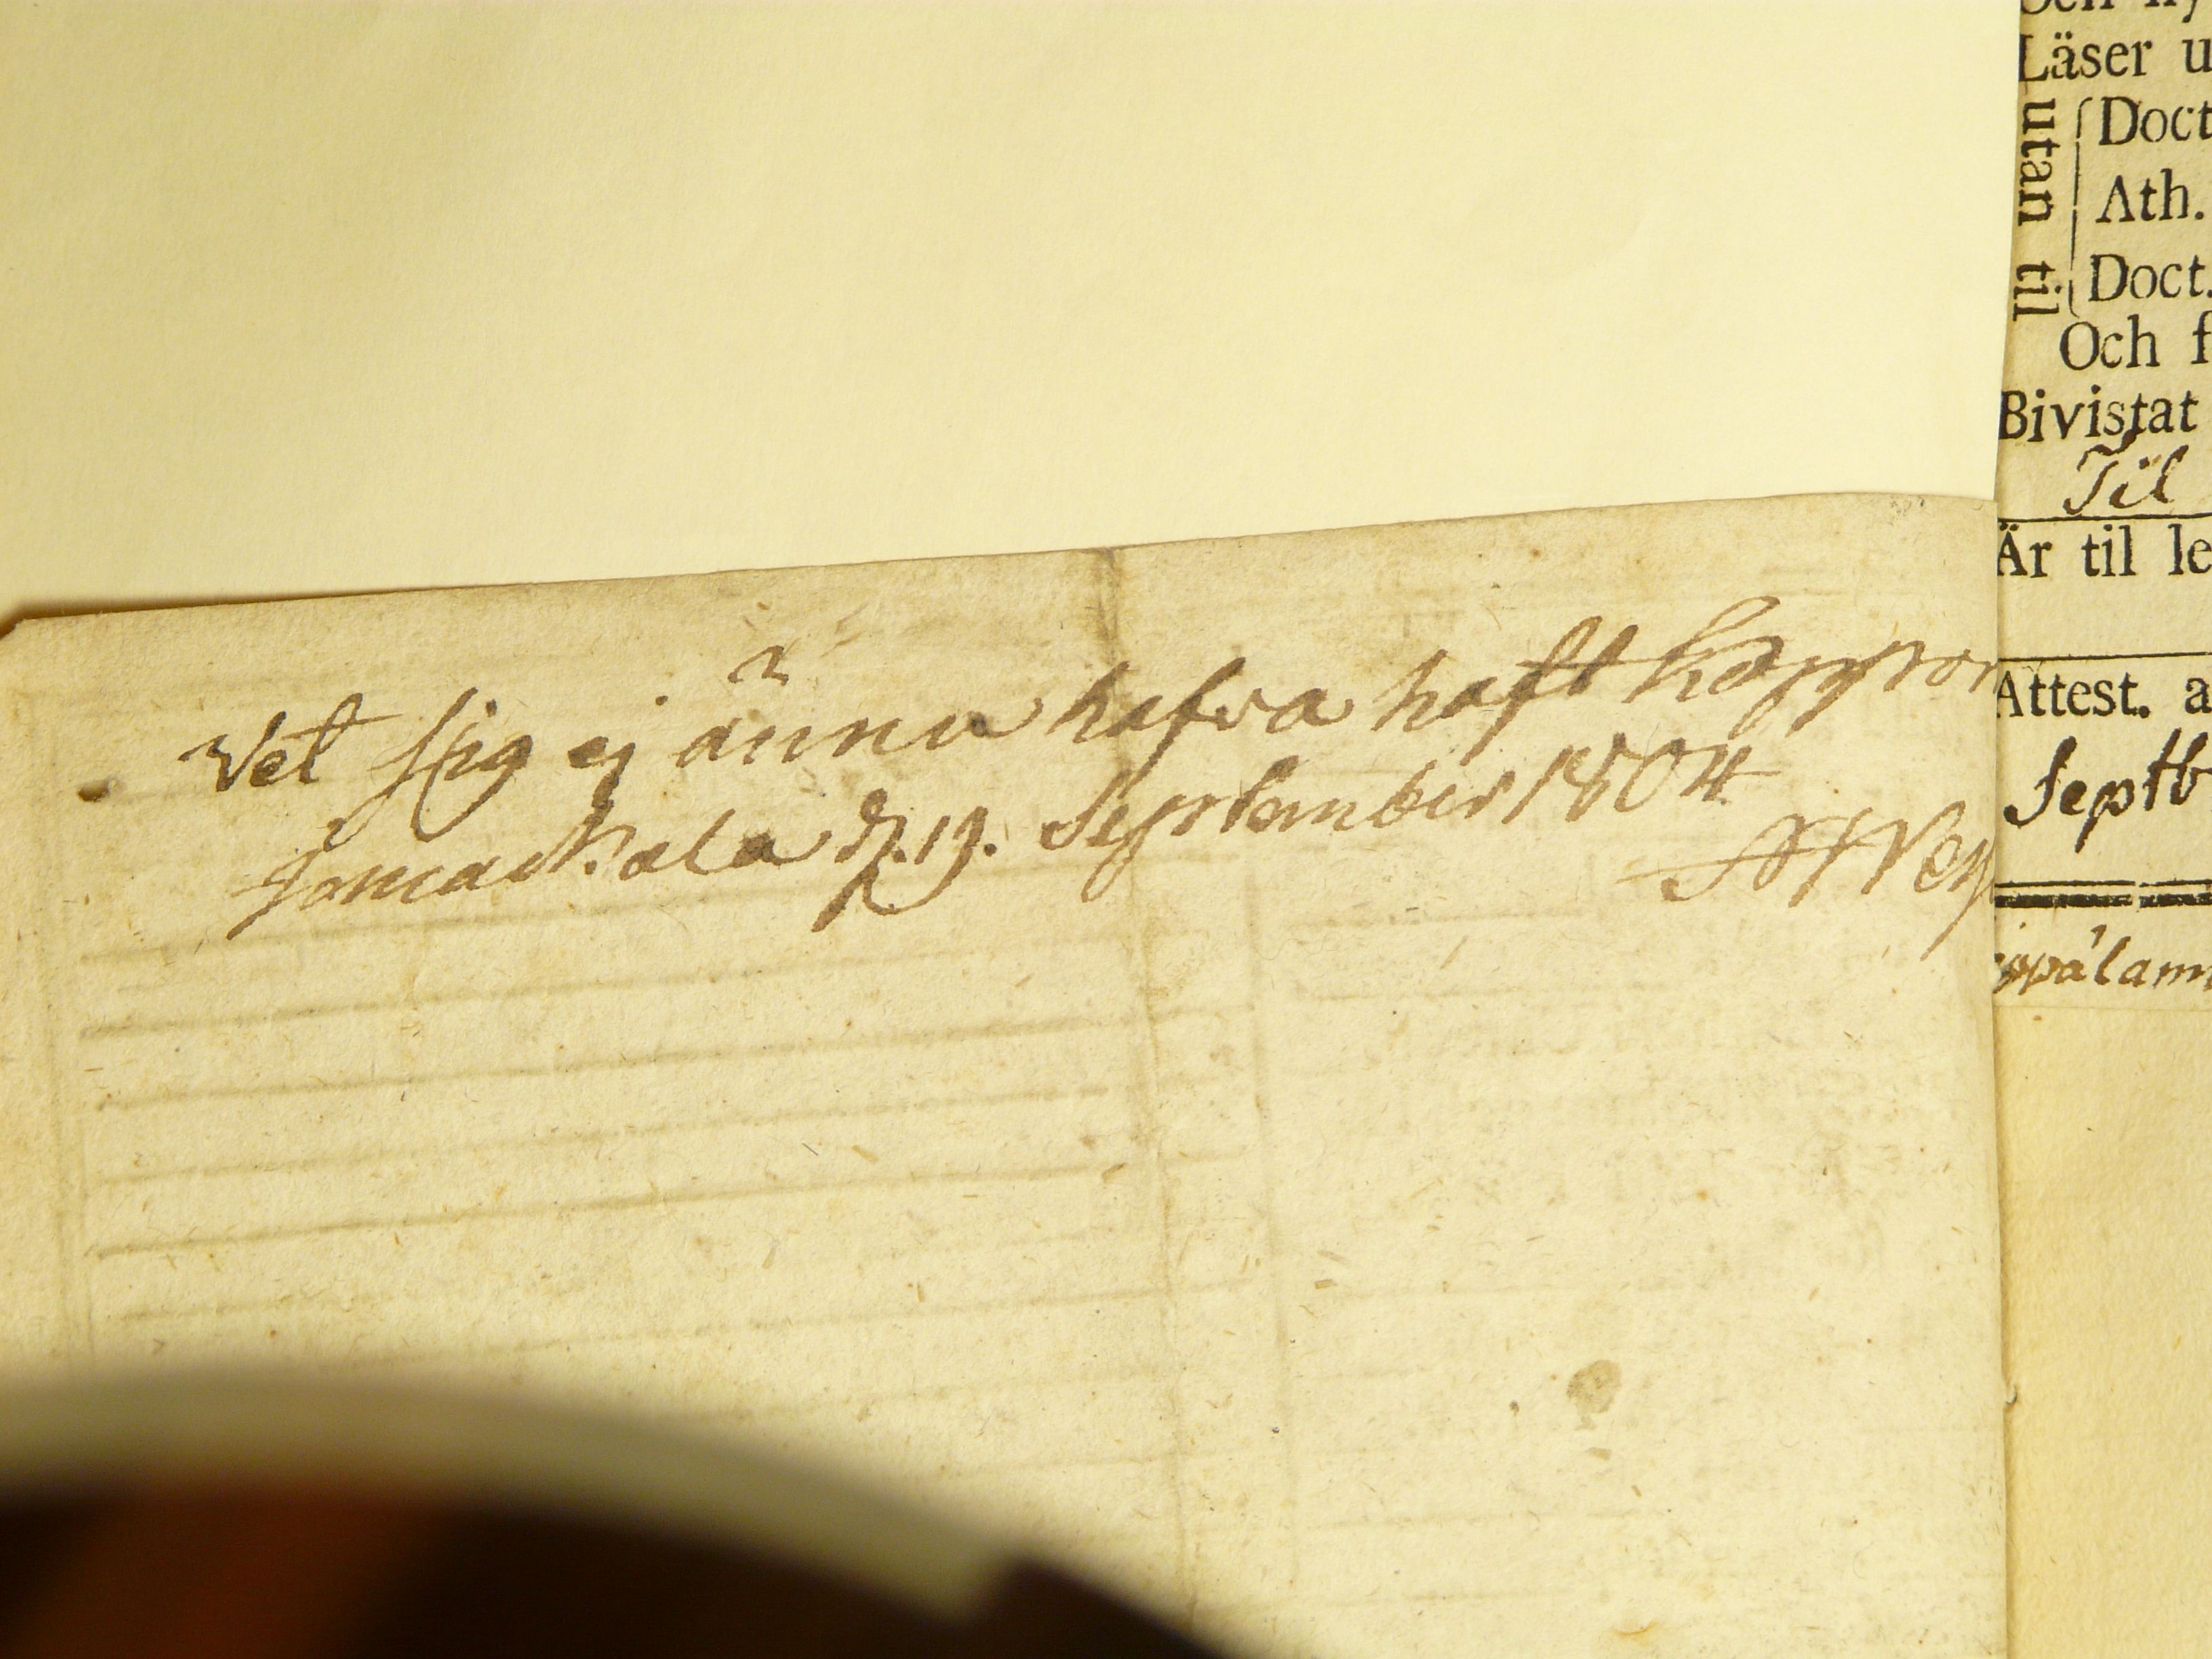 Vet sig ej ännu hafva haft Koppor
d. 13. September 1804
Läser u
utan til
Doct
Ath.
Doct.
Och f
Bivistat
Til
Är til le
Attest. a
Septb